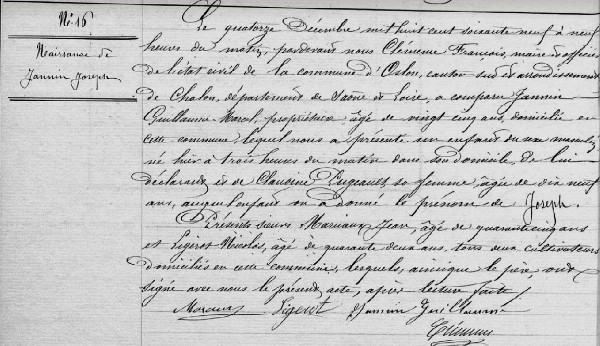 No. 16
Naissance de
Jannin Joseph
Le quatorze Décembre mil huit cent soixante neuf à neuf
heures du matin, pardevant nous Clémence François, maire et officier
de l'état civil de la commune d'Oslon, canton sud et arrondissement
de Chalon, département de Saône et Loire, a comparu Jannin
Guillaume propriétaire, âgé de vingt cinq ans, domicilié en
cette commune, lequel nous a présenté un enfant du sexe masculin
né hier à trois heures du matin dans son domicile, de lui
déclarant et de Claudine sa femme, âgée de dix neuf
ans, auquel enfant on a donné le prénom de Joseph.
Présents sieurs Jean, âgé de quarante cinq ans
et Nicolas, âgé de quarante deux ans, tous deux cultivateurs
domiciliés en cette commune, lesquels, ainsi que le père, ont
signé avec nous le présent acte, après lecture faite.
Jannin Guillaume